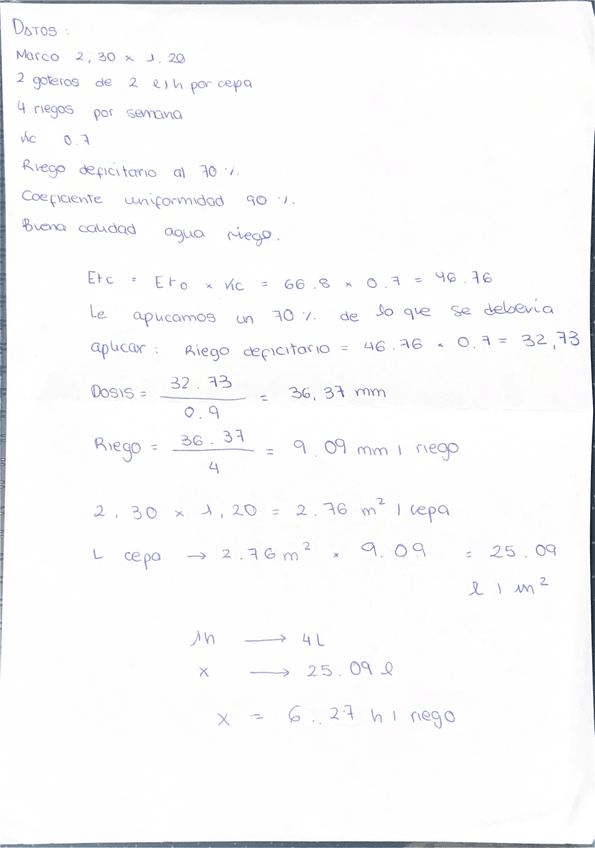 DATOS:
Marco 2,30 x 1.20
2 goteros de 2 l/h por cepa
4 riegos por semana
Kc 0.7
Riego deficitario al 70 %.
Coeficiente uniformidad 90 %.
Buena calidad agua riego.
Etc = Eto x Kc = 66.8 x 0.7 = 46.76
Le aplicamos un 70 % de lo que se debería
aplicar: Riego deficitario = 46.76 x 0.7 = 32,73
Dosis = 32.73 / 0.9 = 36,37 mm
Riego = 36.37 / 4 = 9.09 mm / riego
2,30 x 1,20 = 2.76 m² / cepa
L cepa → 2.76 m² x 9.09 = 25.09
l / m²
1h → 4L
x → 25.09 l
x = 6..27 h / riego